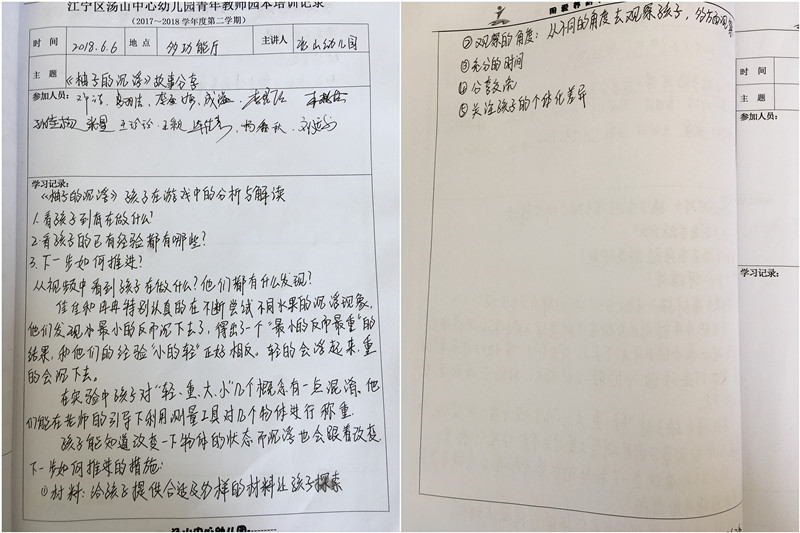 江宁区汤山中心幼儿园青年教师园本培训记录
（2017~2018学年度第二学期）
时 间 2018.6.6 地 点 多功能厅 主讲人 汤山幼儿园
主 题 《柚子的沉浮》故事分享
参加人员：
学习记录：
《柚子的沉浮》孩子在游戏中的分析与解读
1.看孩子到底在做什么？
2.看孩子的已有经验都有哪些？
3.下一步如何推进？
从视频中看到孩子在做什么？他们都有什么发现？
佳佳和冉冉特别认真的在不断尝试不同水果的沉浮现象，
他们发现小最小的反而沉下去了，得出了一个"最小的反而最重"的
结果，和他们的经验"小的轻"正好相反。轻的会浮起来，重
的会沉下去。
在实验中孩子对"轻、重、大、小"几个概念有一点混淆，他
们能在老师的引导下利用测量工具对几个物体进行称重.
孩子能知道改变一下物体的状态而沉浮也会跟着改变.
下一步如何推进的措施：
①材料：给孩子提供合适及多样的材料让孩子探索
汤山中心幼儿园
②观察的角度：从不同的角度去观察孩子，多方的观察
③充分的时间
④分享交流
⑤关注孩子的个体化差异
时 间
主 题
参加人员：
学习记录：